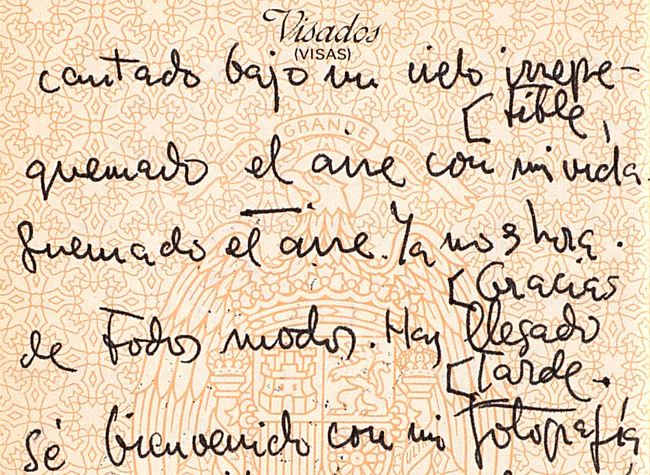 Visados
(VISAS)
cantado bajo un cielo irrepe-
[tible,
quemado el aire con mi vida.
Quemado el aire. Ya no es hora.
[Gracias
de todos modos. Has llegado
[tarde.
Sé bienvenido con mi fotografía